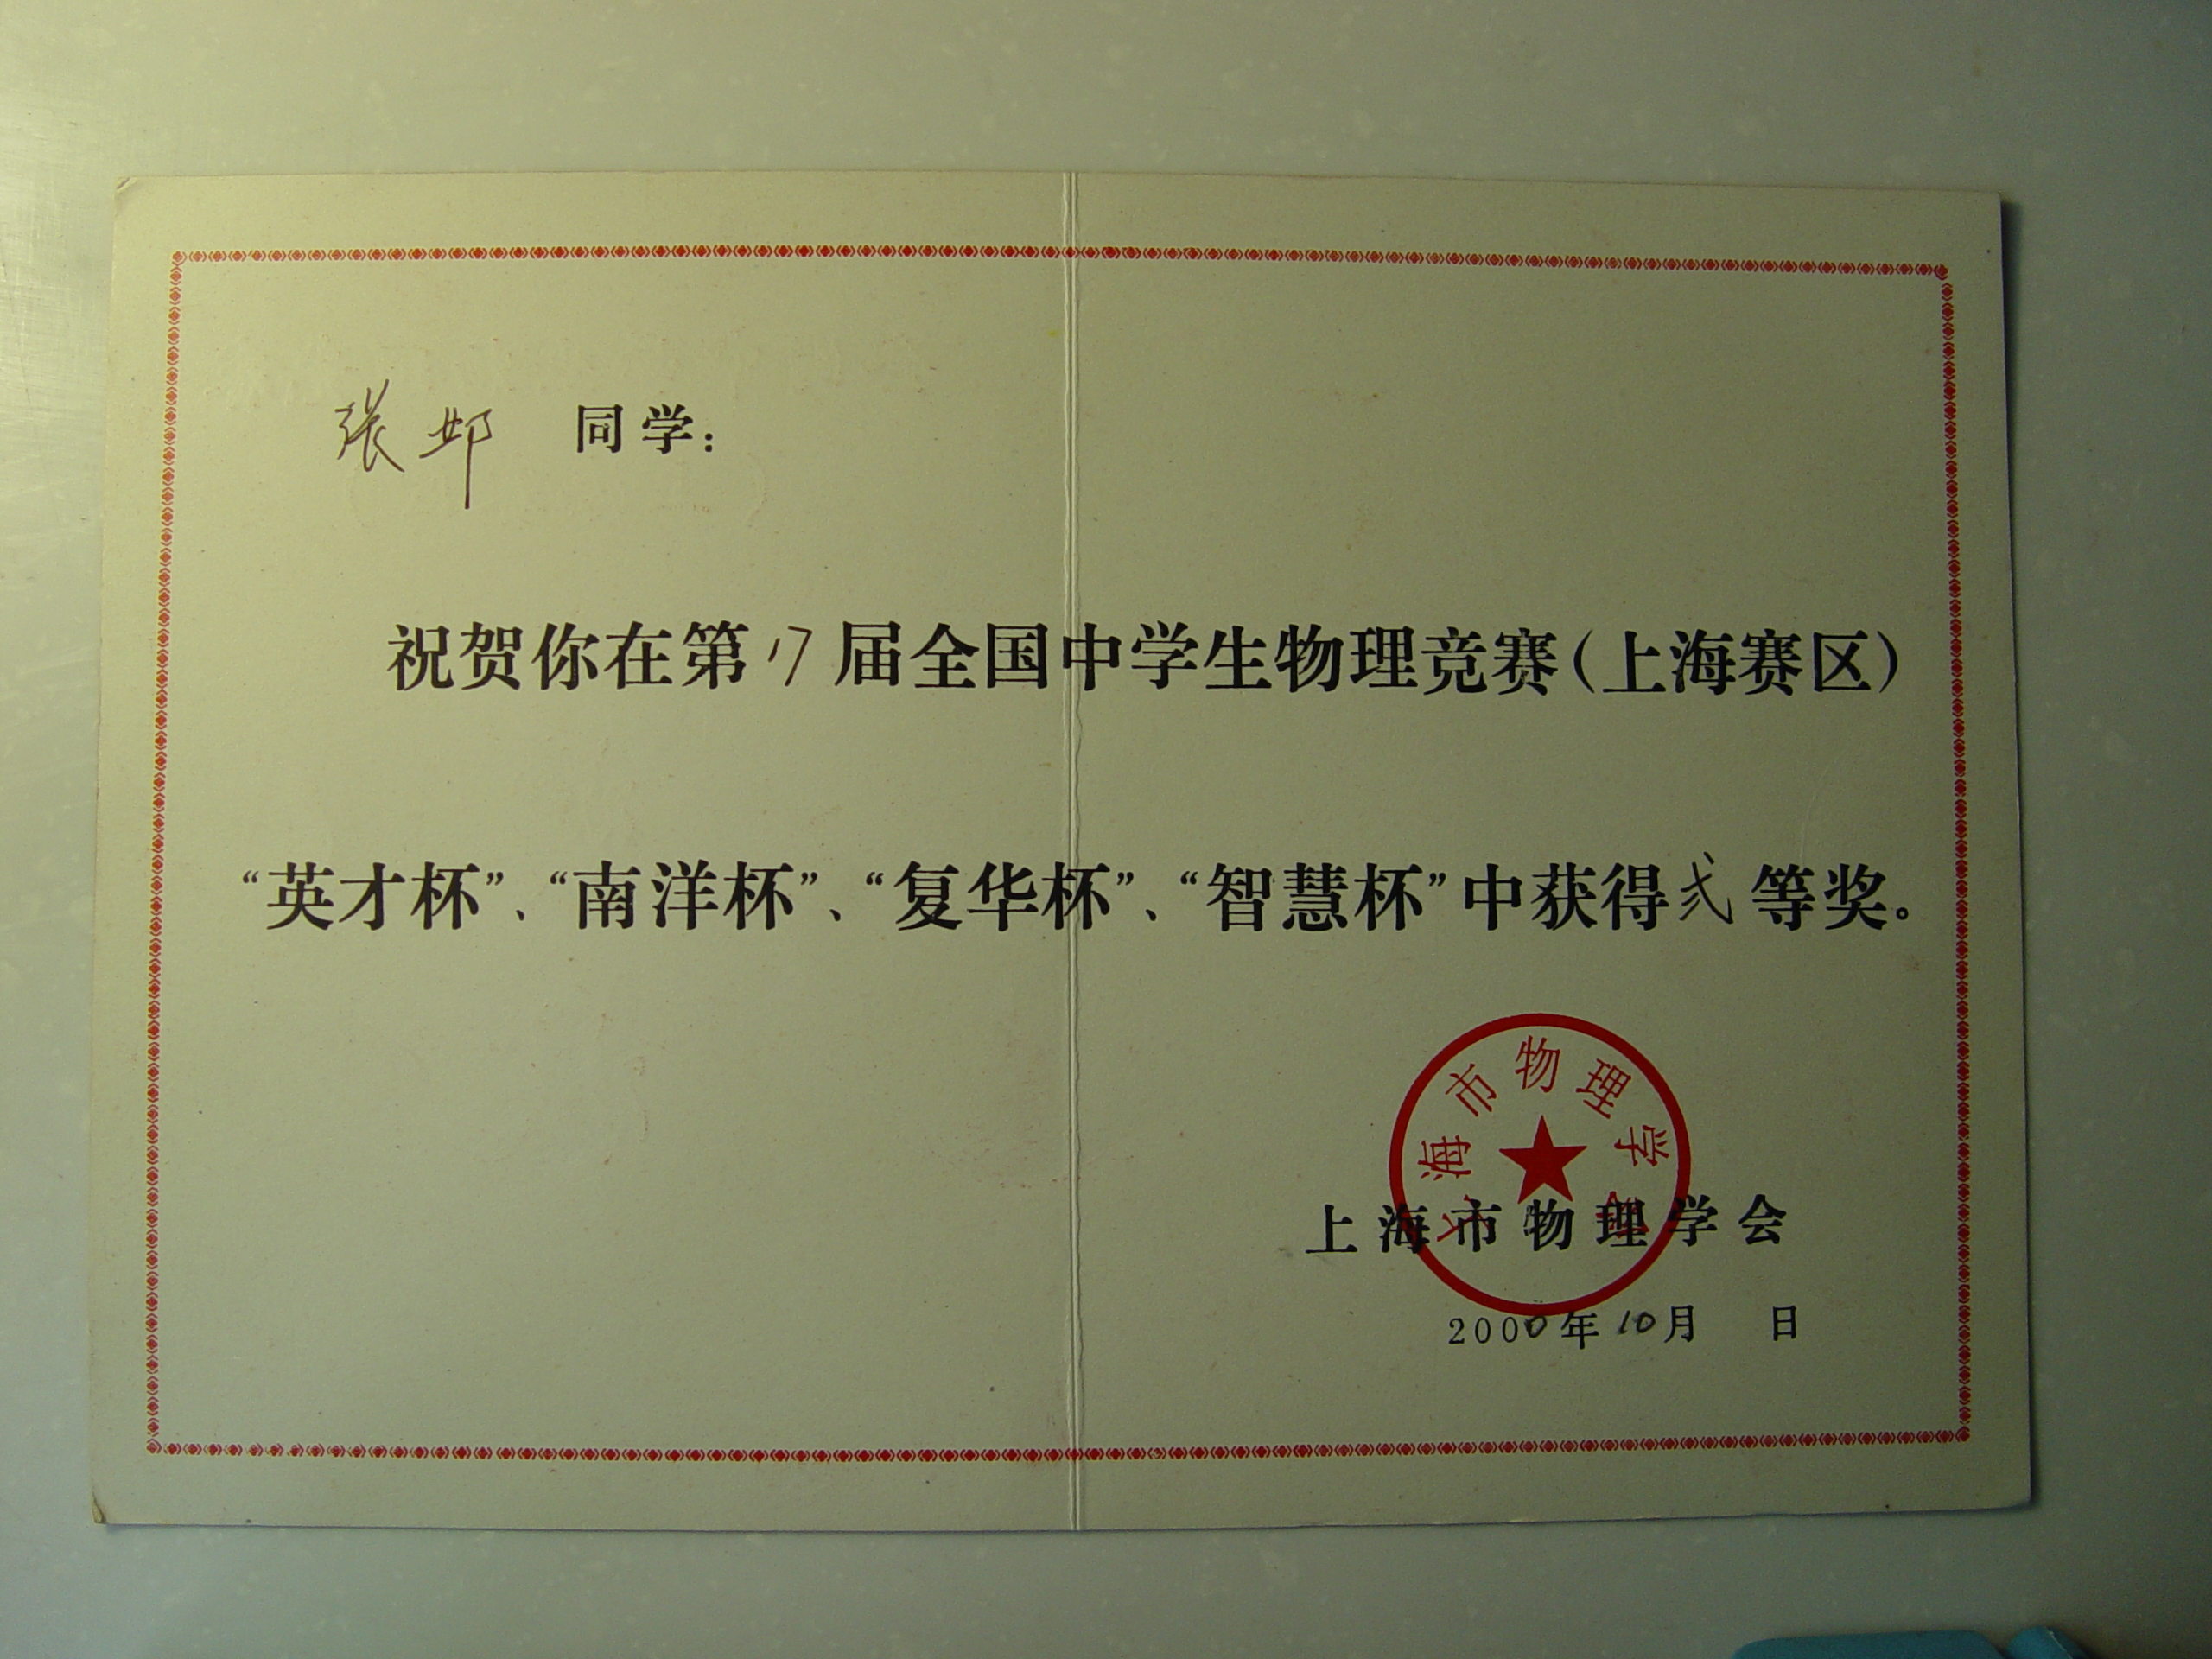 张邺 同学：
祝贺你在第17届全国中学生物理竞赛（上海赛区）
“英才杯”、“南洋杯”、“复华杯”、“智慧杯”中获得弍等奖。
上海市物理学会
上海市物理学会
2000年10月 日